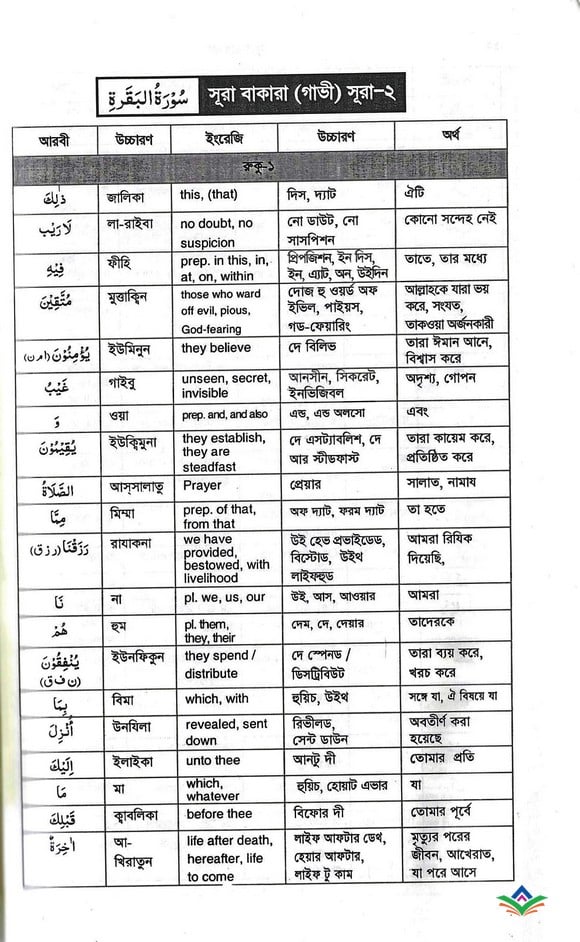 سُوْرَةُ الْبَقَرَةِ সূরা বাকারা (গাভী) সূরা-২
আরবী উচ্চারণ ইংরেজি উচ্চারণ অর্থ
রুকু-১
ذٰلِكَ জালিকা this, (that) দিস, দ্যাট ঐটি
لَا رَيْبَ লা-রাইবা no doubt, no নো ডাউট, নো কোনো সন্দেহ নেই
suspicion সাসপিশন
فِيْهِ ফীহি prep. in this, in, প্রিপজিশন, ইন দিস, তাতে, তার মধ্যে
at, on, within ইন, এ্যাট, অন, উইদিন
مُتَّقِيْنَ মুত্তাক্বিন those who ward দোজ হু ওয়র্ড অফ আল্লাহকে যারা ভয়
off evil, pious, ইভিল, পাইয়স, করে, সংযত,
God-fearing গড-ফেয়ারিং তাকওয়া অর্জনকারী
يُؤْمِنُوْنَ (امن) ইউমিনুন they believe দে বিলিভ তারা ঈমান আনে,
বিশ্বাস করে
غَيْبُ গাইবু unseen, secret, আনসীন, সিকরেট, অদৃশ্য, গোপন
invisible ইনভিজিবল
وَ ওয়া prep. and, and also এন্ড, এন্ড অলসো এবং
يُقِيْمُوْنَ ইউক্বিমুনা they establish, দে এসট্যাবলিশ, দে তারা কায়েম করে,
they are আর স্টীডফাস্ট প্রতিষ্ঠিত করে
steadfast
الصَّلَاةُ আস্সালাতু Prayer প্রেয়ার সালাত, নামায
مِمَّا মিম্মা prep. of that, অফ দ্যাট, ফরম দ্যাট তা হতে
from that
رَزَقْنَا (رزق) রাযাকনা we have উই হেভ প্রভাইডেড, আমরা রিযিক
provided, বিস্টোড, উইথ দিয়েছি,
bestowed, with লাইফহুড
livelihood
نَا না pl. we, us, our উই, আস, আওয়ার আমরা
هُمْ হুম pl. them, দেম, দে, দেয়ার তাদেরকে
they, their
يُنْفِقُوْنَ ইউনফিকুন they spend / দে স্পেনড / তারা ব্যয় করে,
(ن ف ق) distribute ডিসট্রিবিউট খরচ করে
بِمَا বিমা which, with হুয়িচ, উইথ সঙ্গে যা, ঐ বিষয়ে যা
اُنْزِلَ উনযিলা revealed, sent রিভীলড, অবতীর্ণ করা
down সেন্ট ডাউন হয়েছে
اِلَيْكَ ইলাইকা unto thee আনটু দী তোমার প্রতি
مَا মা which, হুয়িচ, হোয়াট এভার যা
whatever
قَبْلِكَ ক্বাবলিকা before thee বিফোর দী তোমার পূর্বে
اٰخِرَةٌ আ- life after death, লাইফ আফটার ডেথ, মৃত্যুর পরের
খিরাতুন hereafter, life হেয়ার আফটার, জীবন, আখেরাত,
to come লাইফ টু কাম যা পরে আসে